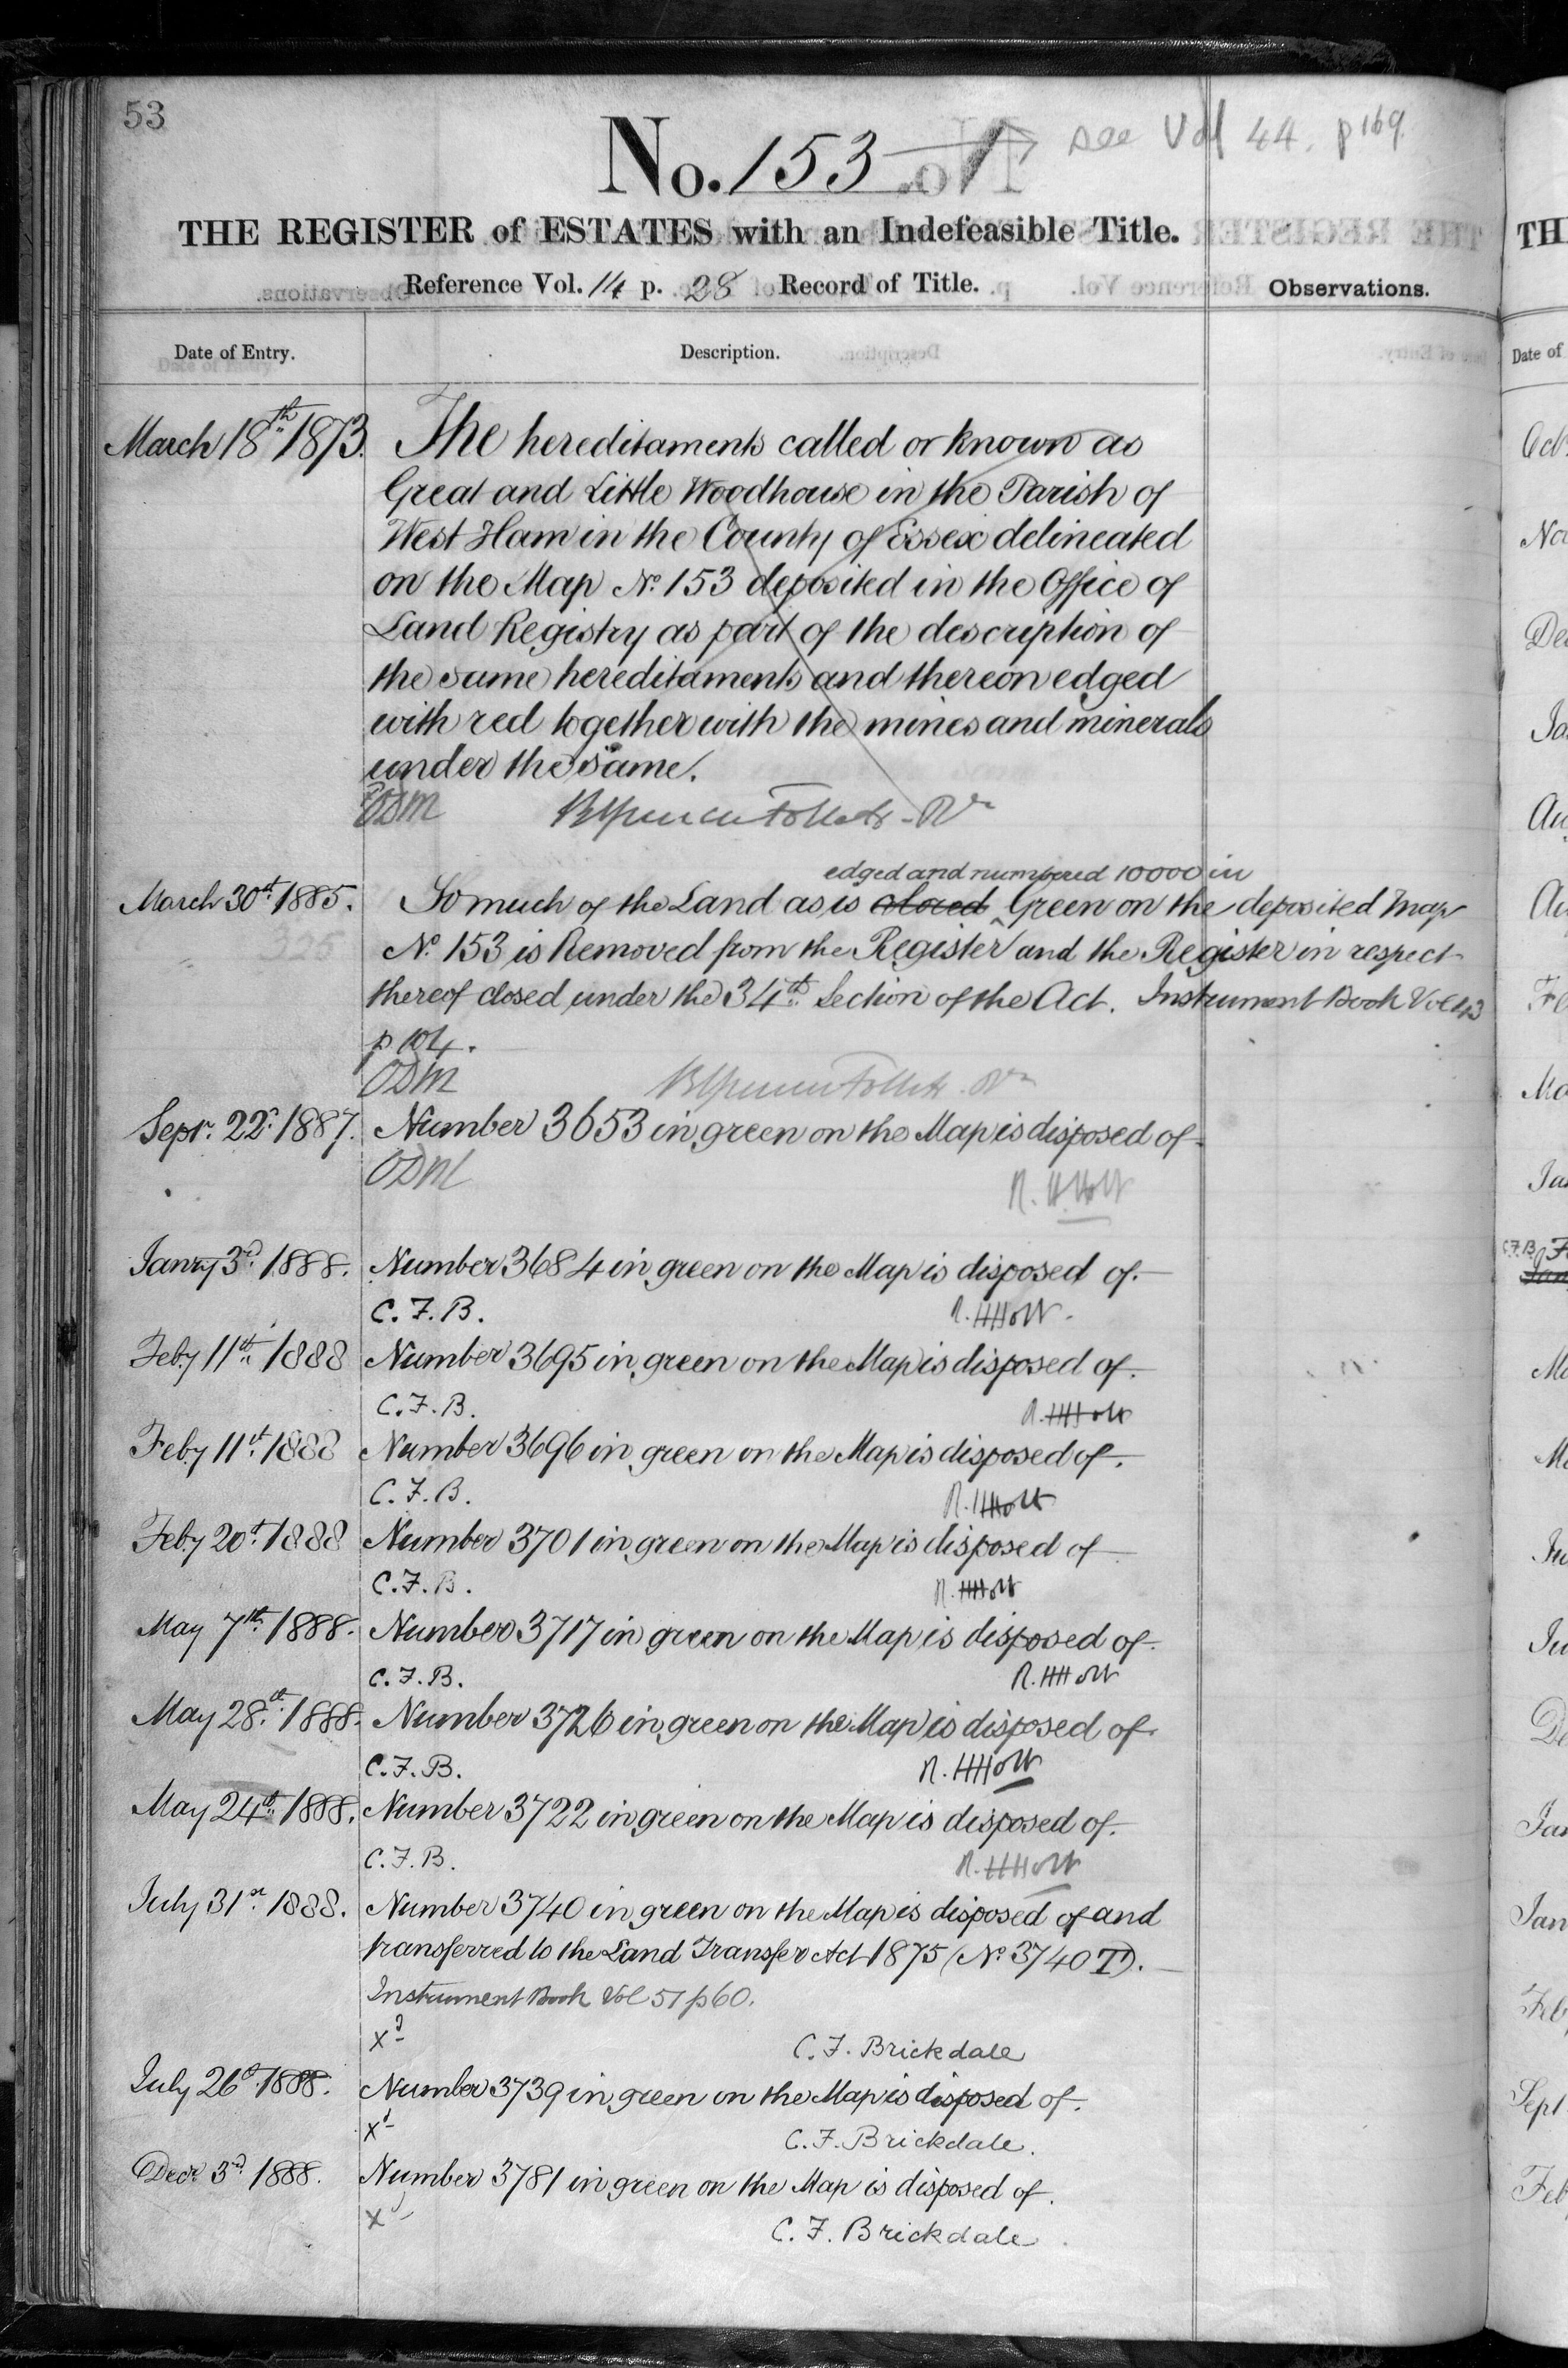 53
No. 153 see Vol 44. p 169.
THE REGISTER of ESTATES with an Indefeasible Title.
Reference Vol. 14 p. 28 Record of Title. Observations.
Date of Entry. Description.
March 18th 1873. The hereditaments called or known as
Great and Little Woodhouse in the Parish of
West Ham in the County of Essex delineated
on the Map No. 153 deposited in the Office of
Land Registry as part of the description of
the same hereditaments and thereon edged
with red together with the mines and minerals
under the same.
ODM
edged and numbered 10000 in
March 30th 1885. So much of the Land as is colored Green on the deposited Map
No. 153 is Removed from the Register and the Register in respect
thereof closed under the 34th Section of the Act. Instrument Book Vol 43
p 104.
ODM
Sepr. 22d 1887. Number 3653 in green on the Map is disposed of
ODM R. H. Holt
Janry 3d 1888. Number 3684 in green on the Map is disposed of.
C. F. B. R. H. Holt.
Feby 11th 1888 Number 3695 in green on the Map is disposed of.
C. F. B. R. H. Holt
Feby 11th 1888 Number 3696 in green on the Map is disposed of.
C. F. B. R. H. Holt
Feby 20th 1888 Number 3701 in green on the Map is disposed of
C. F. B. R. H. Holt
May 7th 1888. Number 3717 in green on the Map is disposed of.
C. F. B. R. H. Holt
May 28th 1888. Number 3726 in green on the Map is disposed of.
C. F. B. R. H. Holt
May 24th 1888. Number 3722 in green on the Map is disposed of.
C. F. B. R. H. Holt
July 31st 1888. Number 3740 in green on the Map is disposed of and
transferred to the Land Transfer Act 1875 (No. 3740 T).
Instrument Book Vol 51 p 60.
Xd C. F. Brickdale
July 26th 1888. Number 3739 in green on the Map is disposed of.
Xd C. F. Brickdale.
Decr 3rd 1888. Number 3781 in green on the Map is disposed of.
Xd C. F. Brickdale